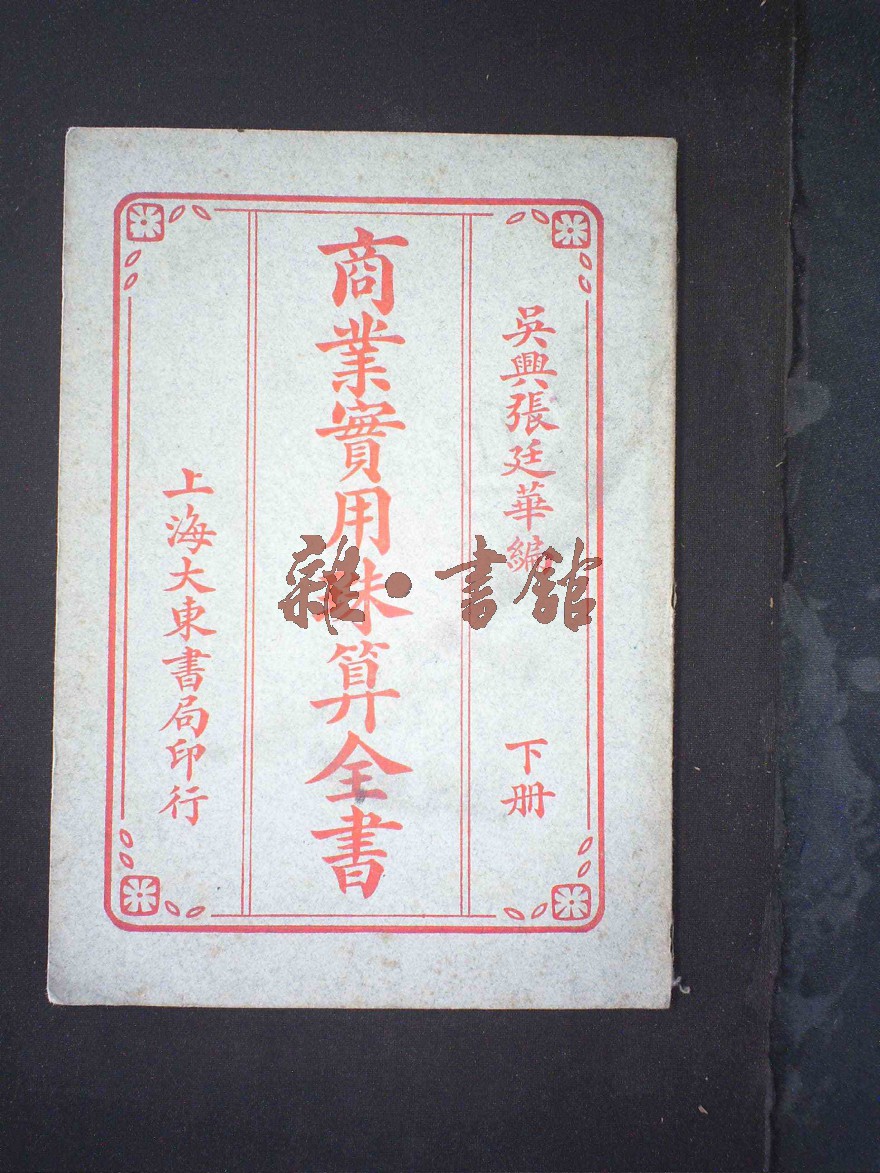 吳興張廷華編
下册
商業實用珠算全書
上海大東書局印行
雜·書館